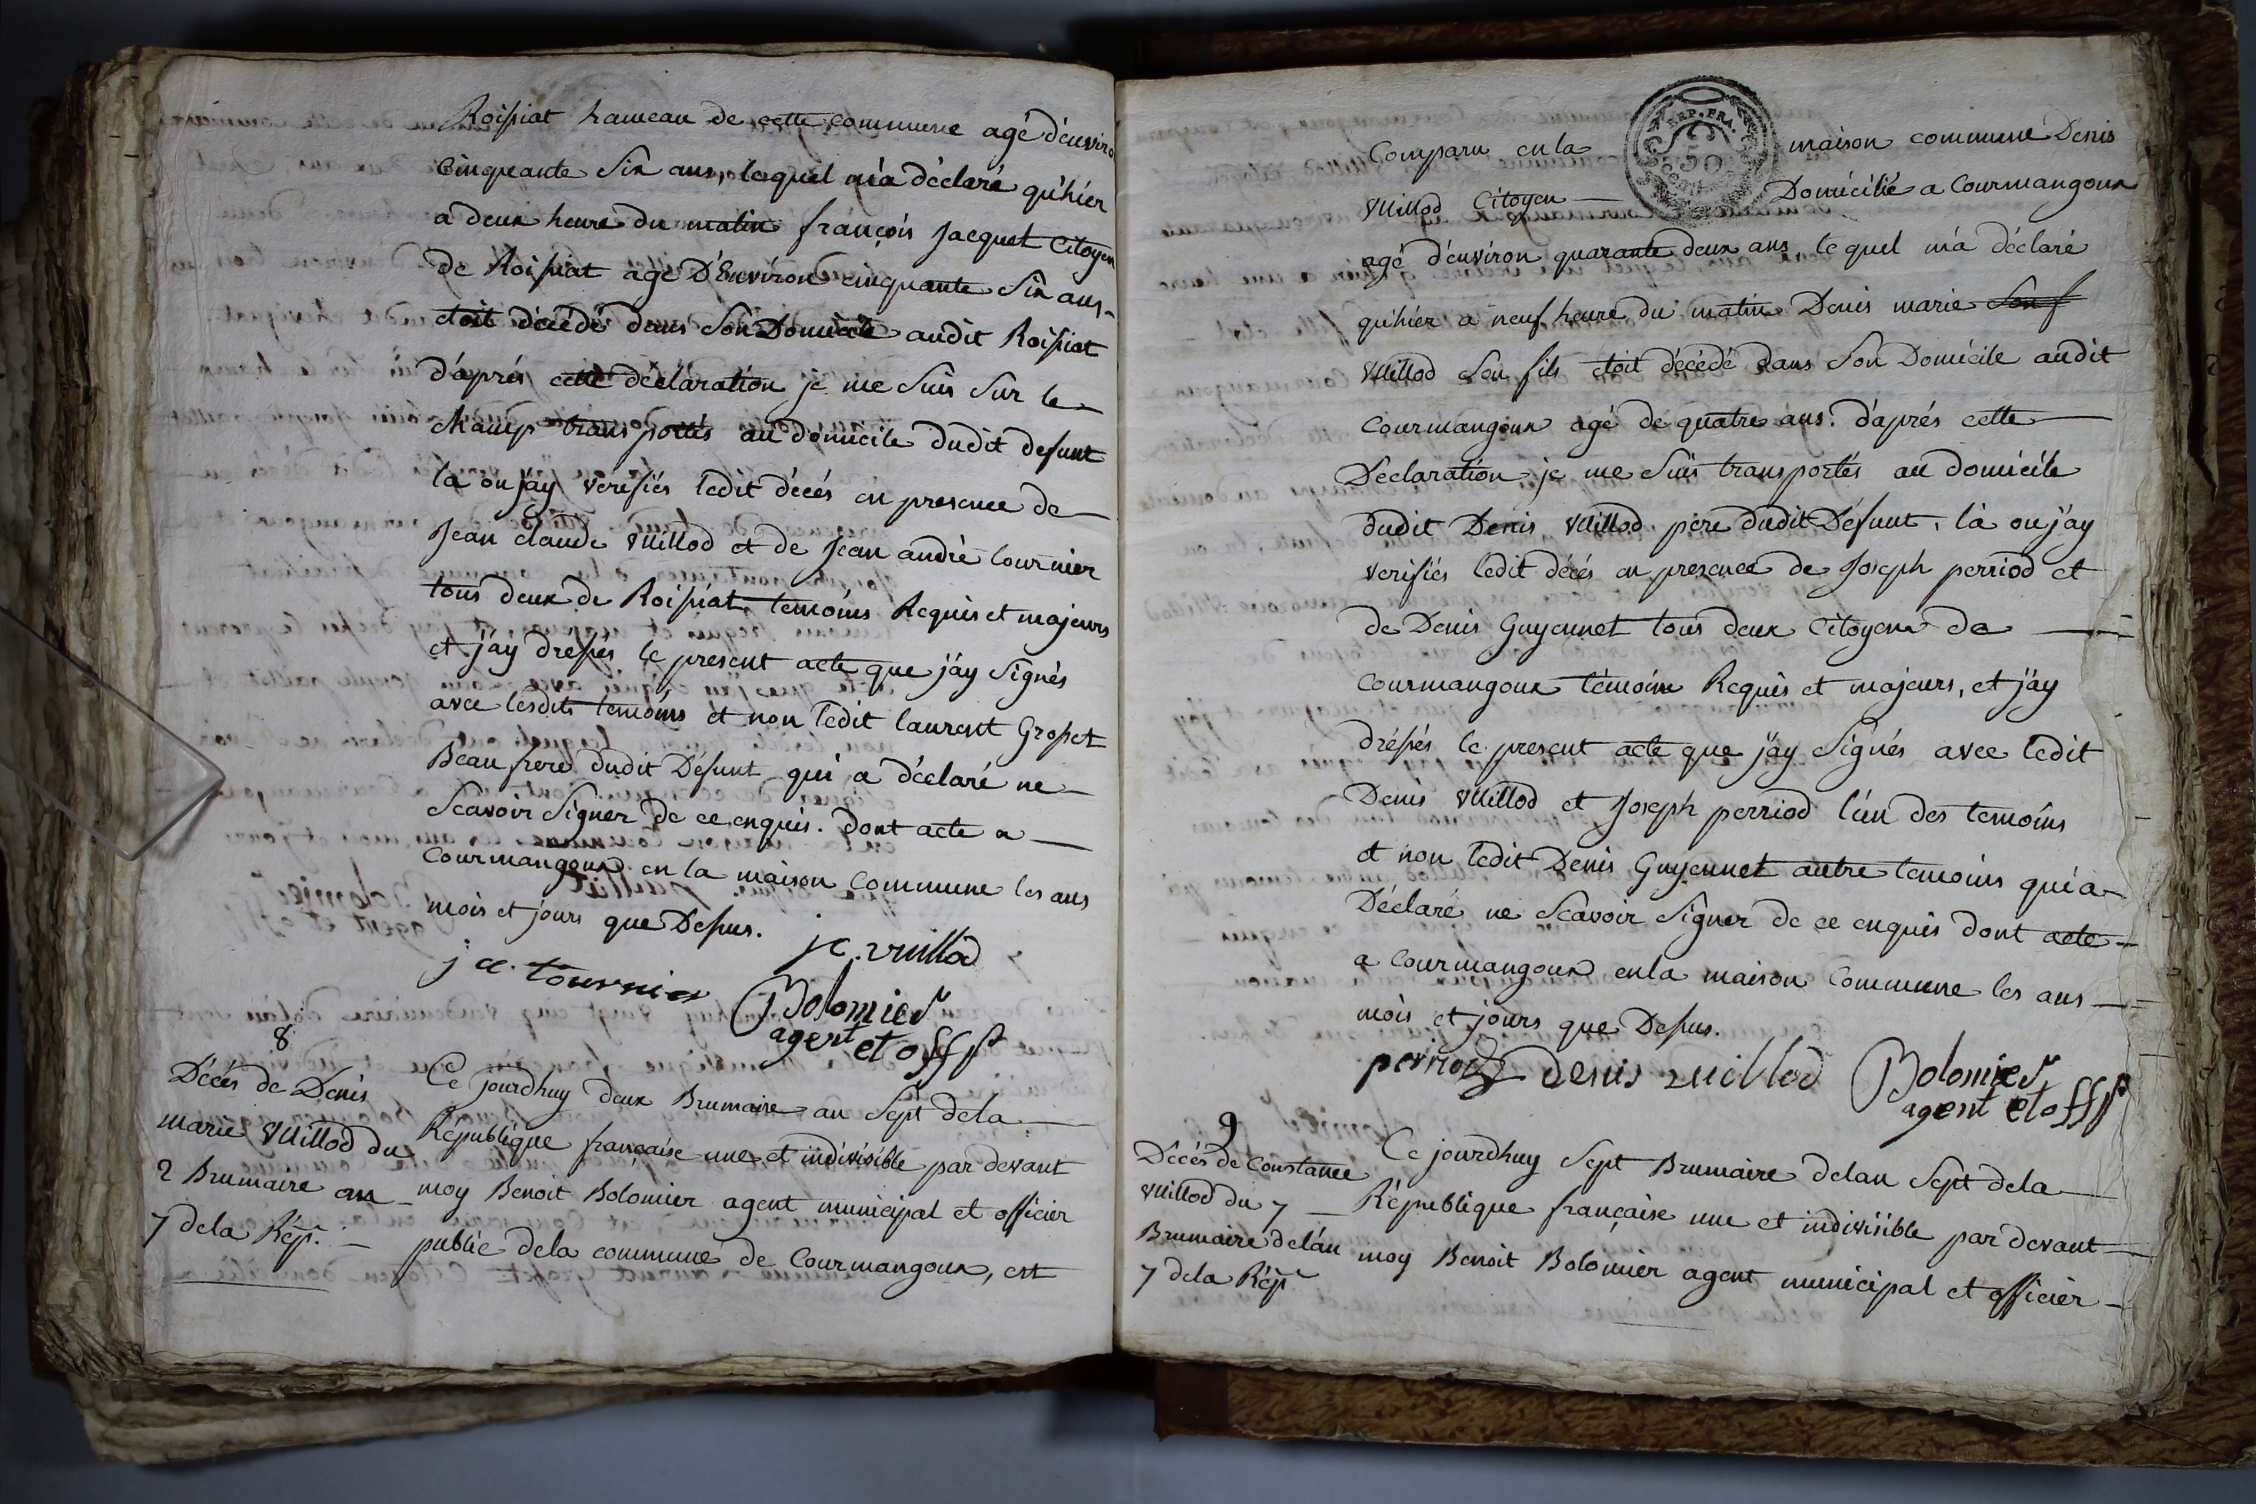 Roissiat hameau de cette commune agé d'enviro
cinquante six ans, lequel m'a déclaré qu'hier
a deux heure du matin françois Jacquet Citoyen
de Roissiat agé D'Environ cinquante six ans
etoit décédé dans son Domicile audit Roissiat
d'aprés cette déclaration je me suis sur le
champ transportés au domicile dudit defunt
la ou j'ay verifiés ledit décés en presence de
Jean claude Vuillod et de Jean andré tournier
tous deux de Roissiat temoins Requis et majeurs
et j'ay dréssés le present acte que j'ay signés
avec lesdits temoins et non ledit laurent Grosset
Beau frere dudit Défunt qui a déclaré ne
Scavoir Signer de ce enquis. dont acte a
Courmangoux en la maison commune les ans
mois et jours que Dessus.
jc. vuillod
j a. tournier
Bolomier
agent et off p
8
Décés de Denis
marie Vuillod du
2 Brumaire an
7 dela Rép.
Ce jourdhuy deux Brumaire an Sept dela
République française une et indivisible par devant
moy Benoit Bolomier agent municipal et officier
public dela commune de Courmangoux, est
REP. FRA.
50
Comparu en la maison commune Denis
Vuillod Citoyen Domicilié a Courmangoux
agé d'environ quarante deux ans lequel m'a déclaré
qu'hier a neuf heure du matin Denis marie Son f
Vuillod Son fils etoit décédé dans Son Domicile audit
Courmangoux agé de quatre ans. d'aprés cette
Déclaration je me suis transportés au domicile
dudit Denis Vuillod pere dudit Défunt, là ou j'ay
verifiés ledit décés en presence de Joseph perriod et
de Denis Guyennet tous deux Citoyens de
Courmangoux témoins Requis et majeurs, et j'ay
dréssés le present acte que j'ay Signés avec ledit
Denis Vuillod et Joseph perriod l'un des temoins
et non ledit Denis Guyennet autre temoins qui a
Déclaré ne Scavoir Signer de ce enquis dont acte
a Courmangoux en la maison Commune les ans
mois et jours que Dessus.
perriod Denis vuillod Bolomier
agent et off p
9
Décés de Constance
Vuillod du 7
Brumaire delan
7 dela Rép
Ce jourdhuy Sept Brumaire delan Sept dela
République française une et indivisible par devant
moy Benoit Bolomier agent municipal et officier